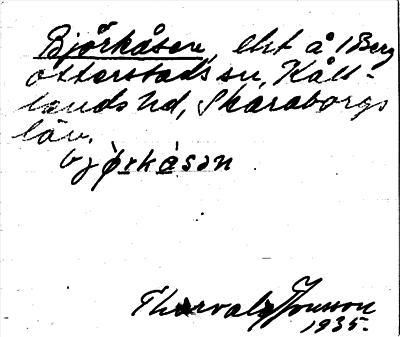 Björkåsen, ekt å 1 Berg
otterstads sn, Kåll-
lands hd, Skaraborgs
län.
bjö̀rkåsən
Thorvald Jonsson
1935.